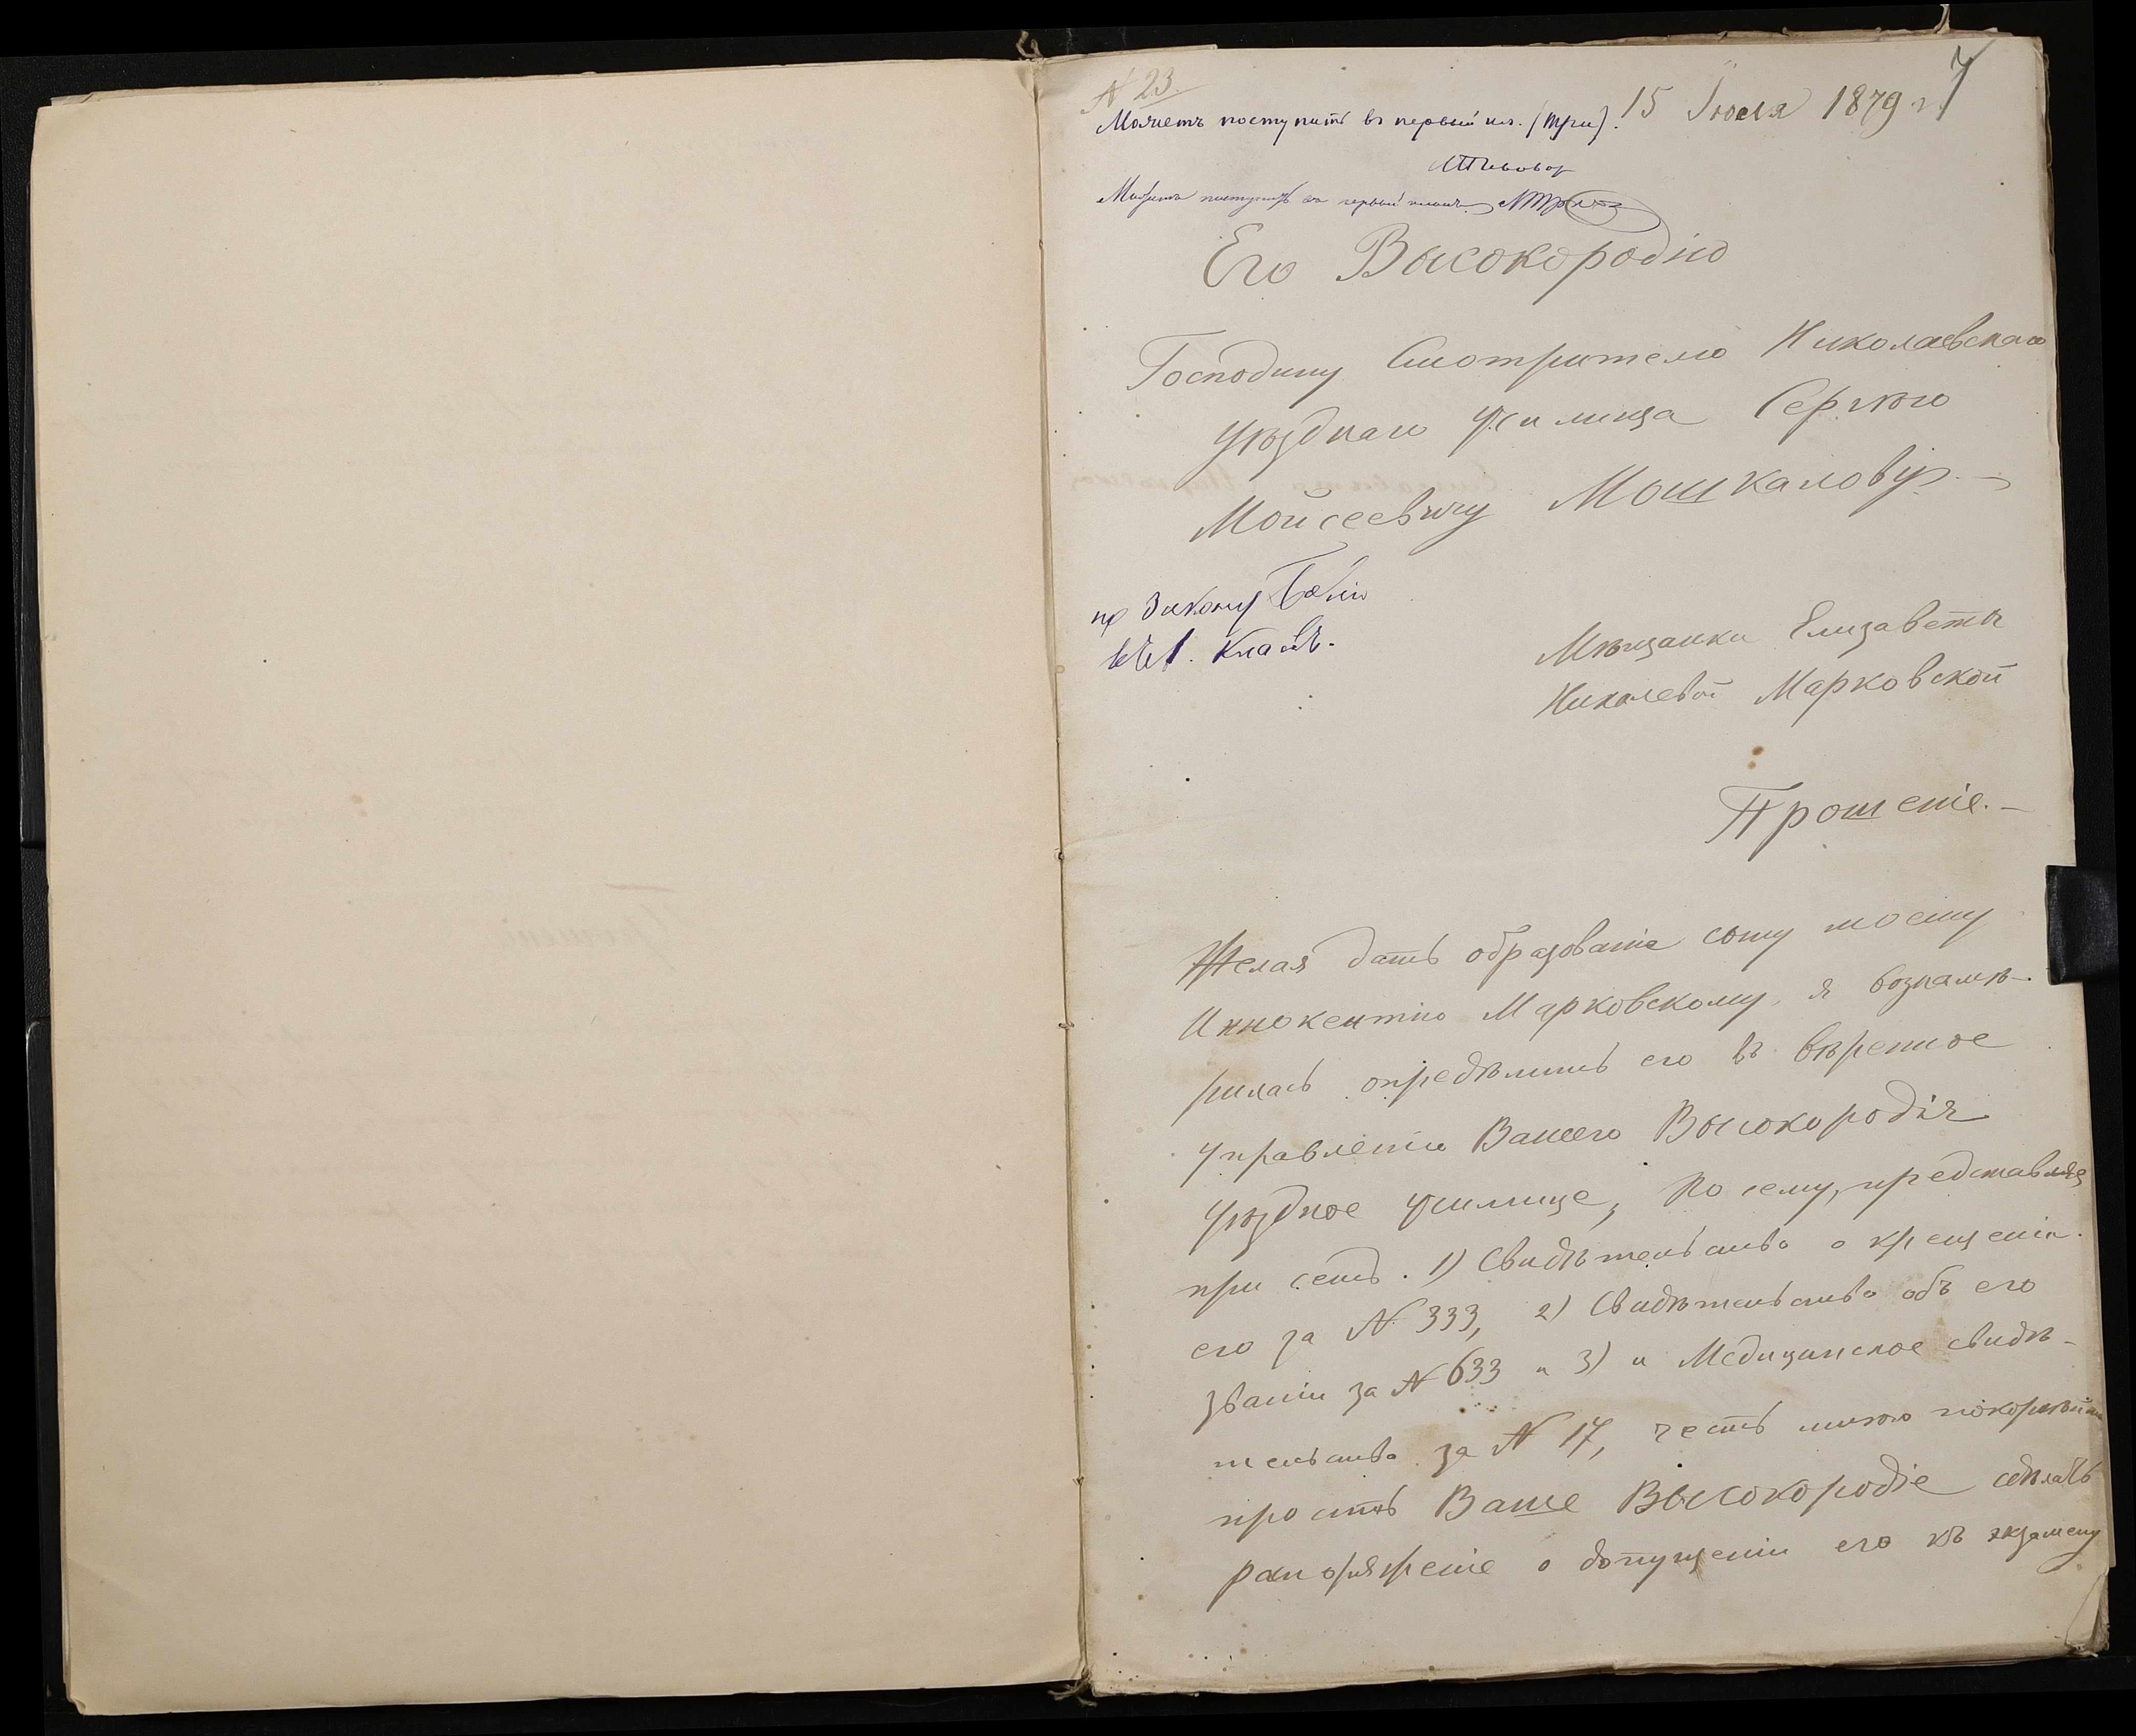 7
N 23.
15 Июля 1879 г.
Можетъ поступить въ первый кл. (три).
Можетъ поступить въ первый классъ.
Его Высокородію
Господину Смотрителю Николаевскаго
Уѣзднаго Училища Сергѣю
Мойсеевичу Мошкалову.
по Закону Божію
въ 1. Классъ.
Мѣщанки Елизаветы
Николевой Марковской
Прошеніе.
Желая дать образованіе сыну моему
Инокентію Марковскому, я вознамѣ-
рилась опредѣлить его въ ввѣренное
управленію Вашего Высокородія
Уѣздное училище, По сему, представляя
при семъ. 1) Свидѣтельство о крещеніи
его за N 333, 2) Свидѣтельство объ его
званіи за N 633 и 3) и Медицинское свидѣ-
тельство за N 17, честь имѣю покорнѣйше
просить Ваше Высокородіе сдѣлать
распоряженіе о допущеніи его къ экзамену